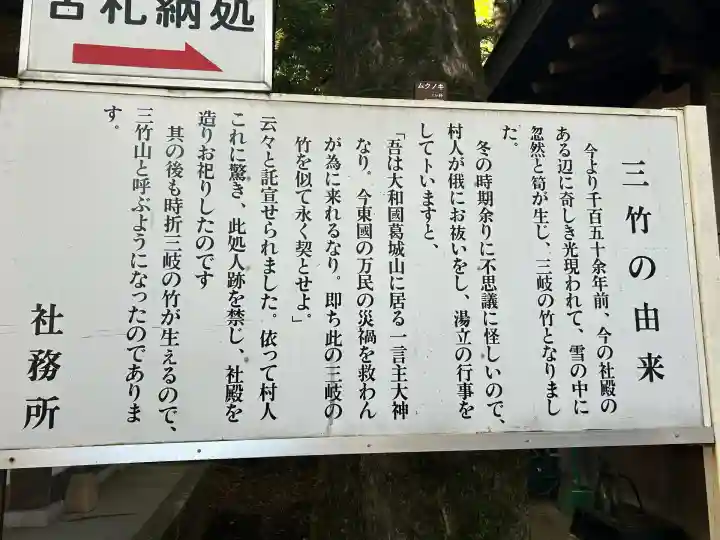 古札納処
ムクノキ
三竹の由来
今より千百五十余年前、今の社殿の
ある辺に奇しき光現われて、雪の中に
忽然と筍が生じ、三岐の竹となりまし
た。
冬の時期余りに不思議に怪しいので、
村人が俄にお祓いをし、湯立の行事を
してトいますと、
「吾は大和國葛城山に居る一言主大神
なり。今東國の万民の災禍を救わん
が為に来れるなり。即ち此の三岐の
竹を似て永く契とせよ。」
云々と託宣せられました。依って村人
これに驚き、此処人跡を禁し、社殿を
造りお祀りしたのです
其の後も時折三岐の竹が生えるので、
三竹山と呼ぶようになったのでありま
す。
社務所